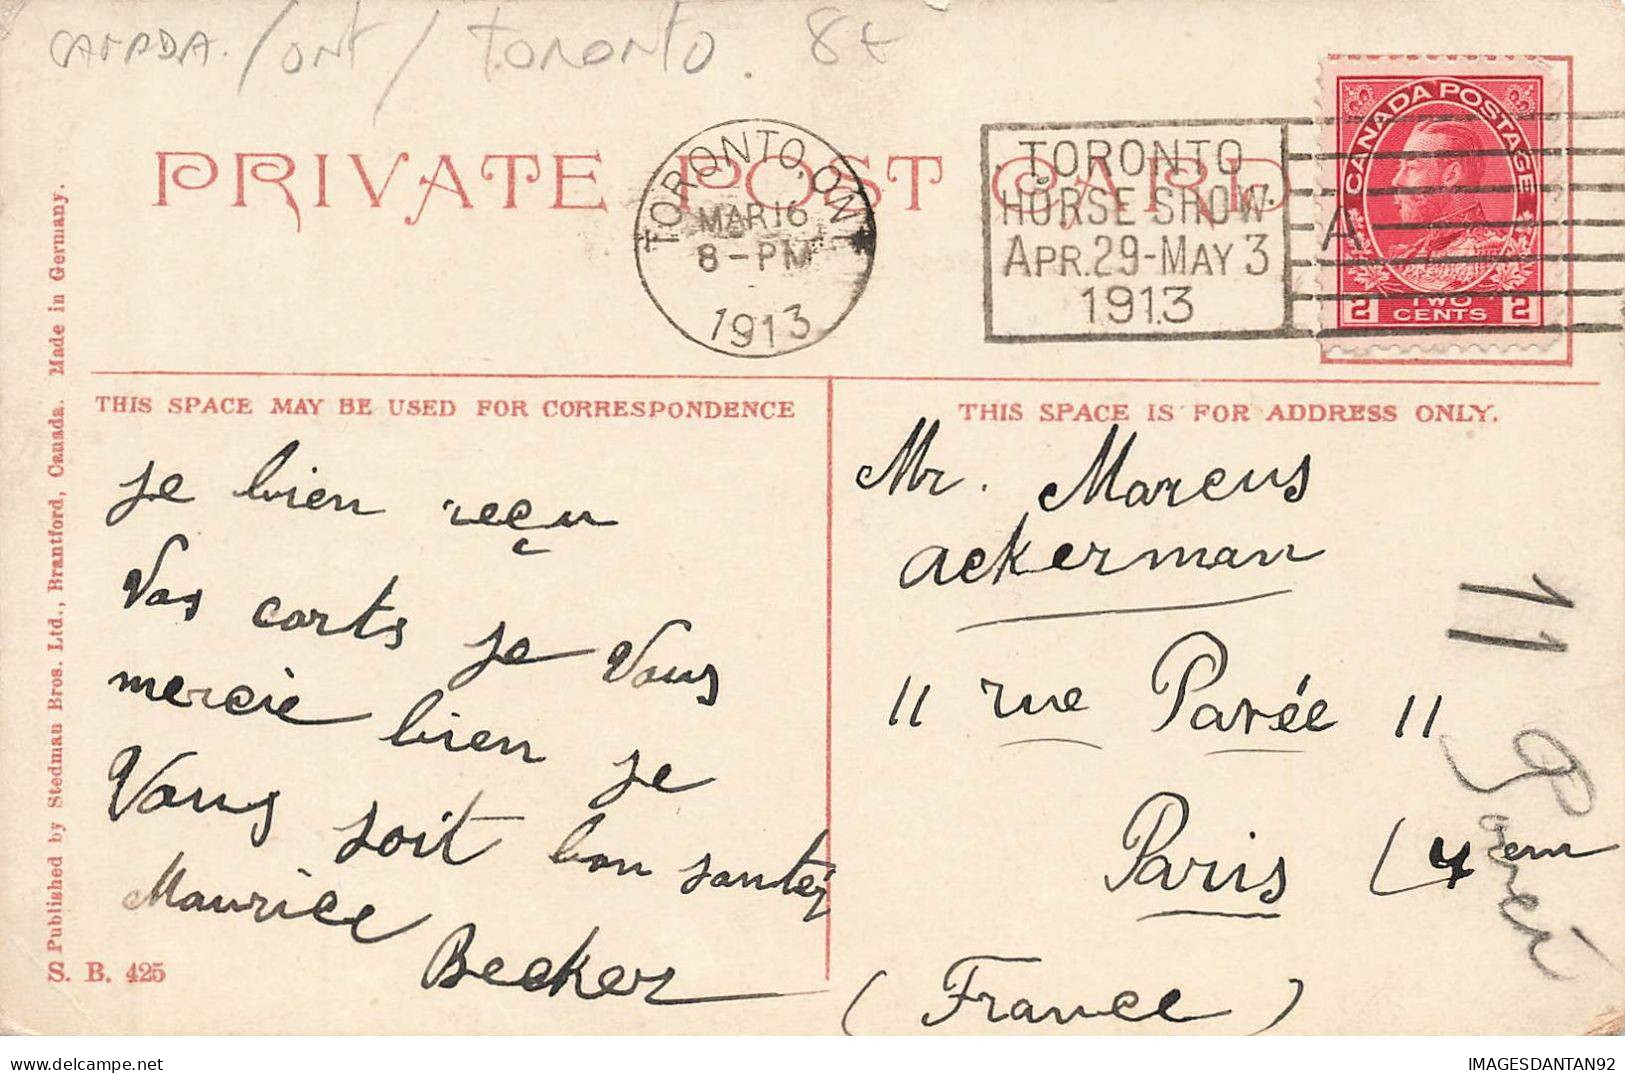 CANADA / ont / toronto. 8€
PRIVATE POST CARD
TORONTO, ONT
MAR 16
8-PM
1913
TORONTO
HORSE SHOW.
APR. 29-MAY 3
1913
A
CANADA POSTAGE
2 TWO CENTS 2
THIS SPACE MAY BE USED FOR CORRESPONDENCE
je bien reçu
Vos carts je Vous
mercie bien je
Vous soit bon santéz
Maurice
Becker
THIS SPACE IS FOR ADDRESS ONLY.
Mr. Marcus
ackerman
11 rue Parée 11
Paris (4em
(France)
11
Published by Stedman Bros. Ltd., Brantford, Canada. Made in Germany.
S. B. 425
delcampe.net
IMAGESDANTAN92